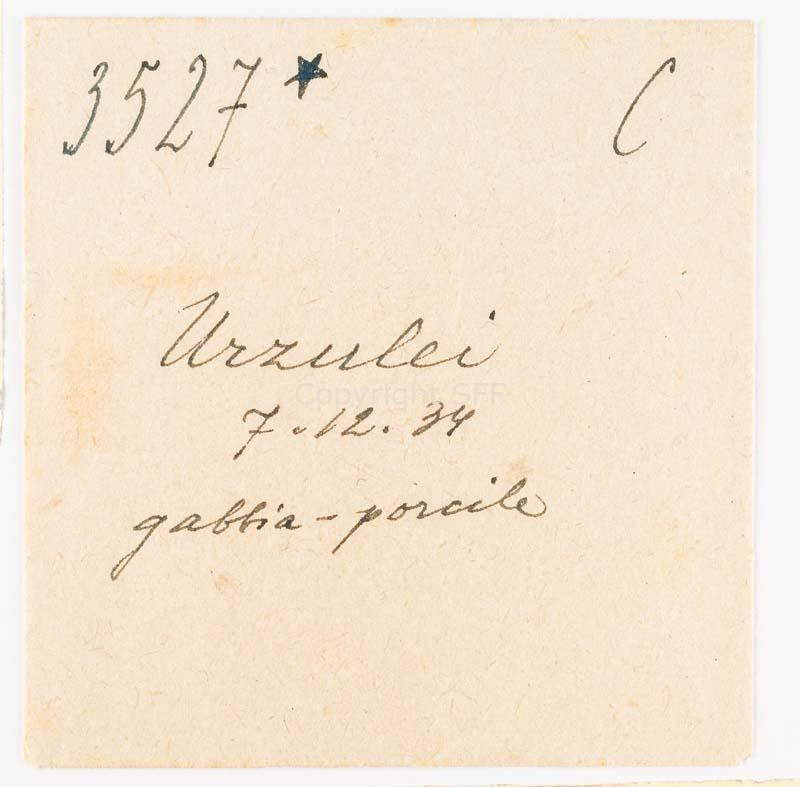 3527* C
Urzulei
Copyright SFF
7.12.34
gabbia-porcile